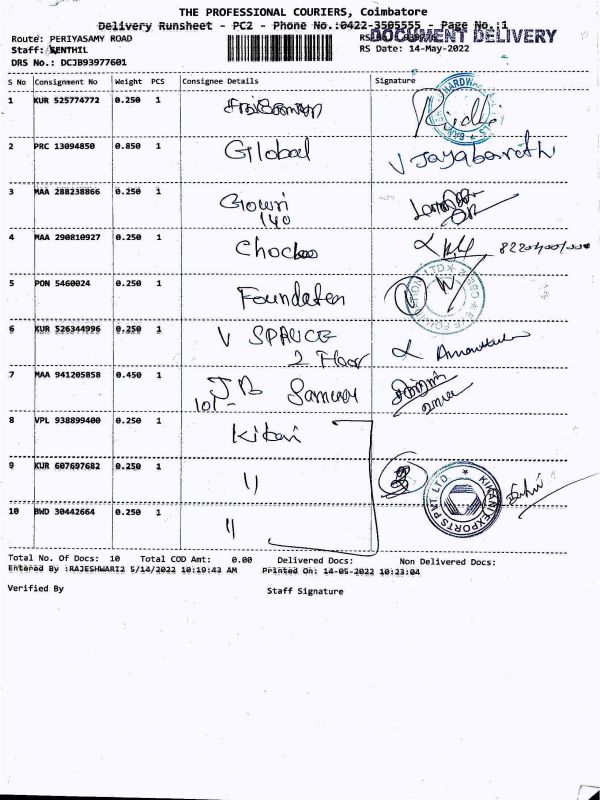 THE PROFESSIONAL COURIERS, Coimbatore
Delivery Runsheet - PC2 - Phone No.:0422-3505555 - Page No.:1
DOCUMENT DELIVERY
Route: PERIYASAMY ROAD
Staff: SENTHIL RS Date: 14-May-2022
DRS No.: DCJB93977601
S No Consignment No Weight PCS Consignee Details Signature
1 KUR 525774772 0.250 1
2 PRC 13094850 0.850 1 Global V Jayabarath
3 MAA 288238866 0.250 1 Gowri
140
4 MAA 290810927 0.250 1
5 PON 5460024 0.250 1 Foundaten
6 KUR 526344996 0.250 1 V SPAUCE
2 Floor
7 MAA 941205858 0.450 1 JB
101-
8 VPL 938899400 0.250 1 Kitari
9 KUR 607697682 0.250 1 11
KIKANI EXPORTS PVT LTD
10 BWD 30442664 0.250 1 11
Total No. Of Docs: 10 Total COD Amt: 0.00 Delivered Docs: Non Delivered Docs:
Entered By :RAJESHWARI2 5/14/2022 10:19:43 AM Printed On: 14-05-2022 10:23:04
Verified By Staff Signature